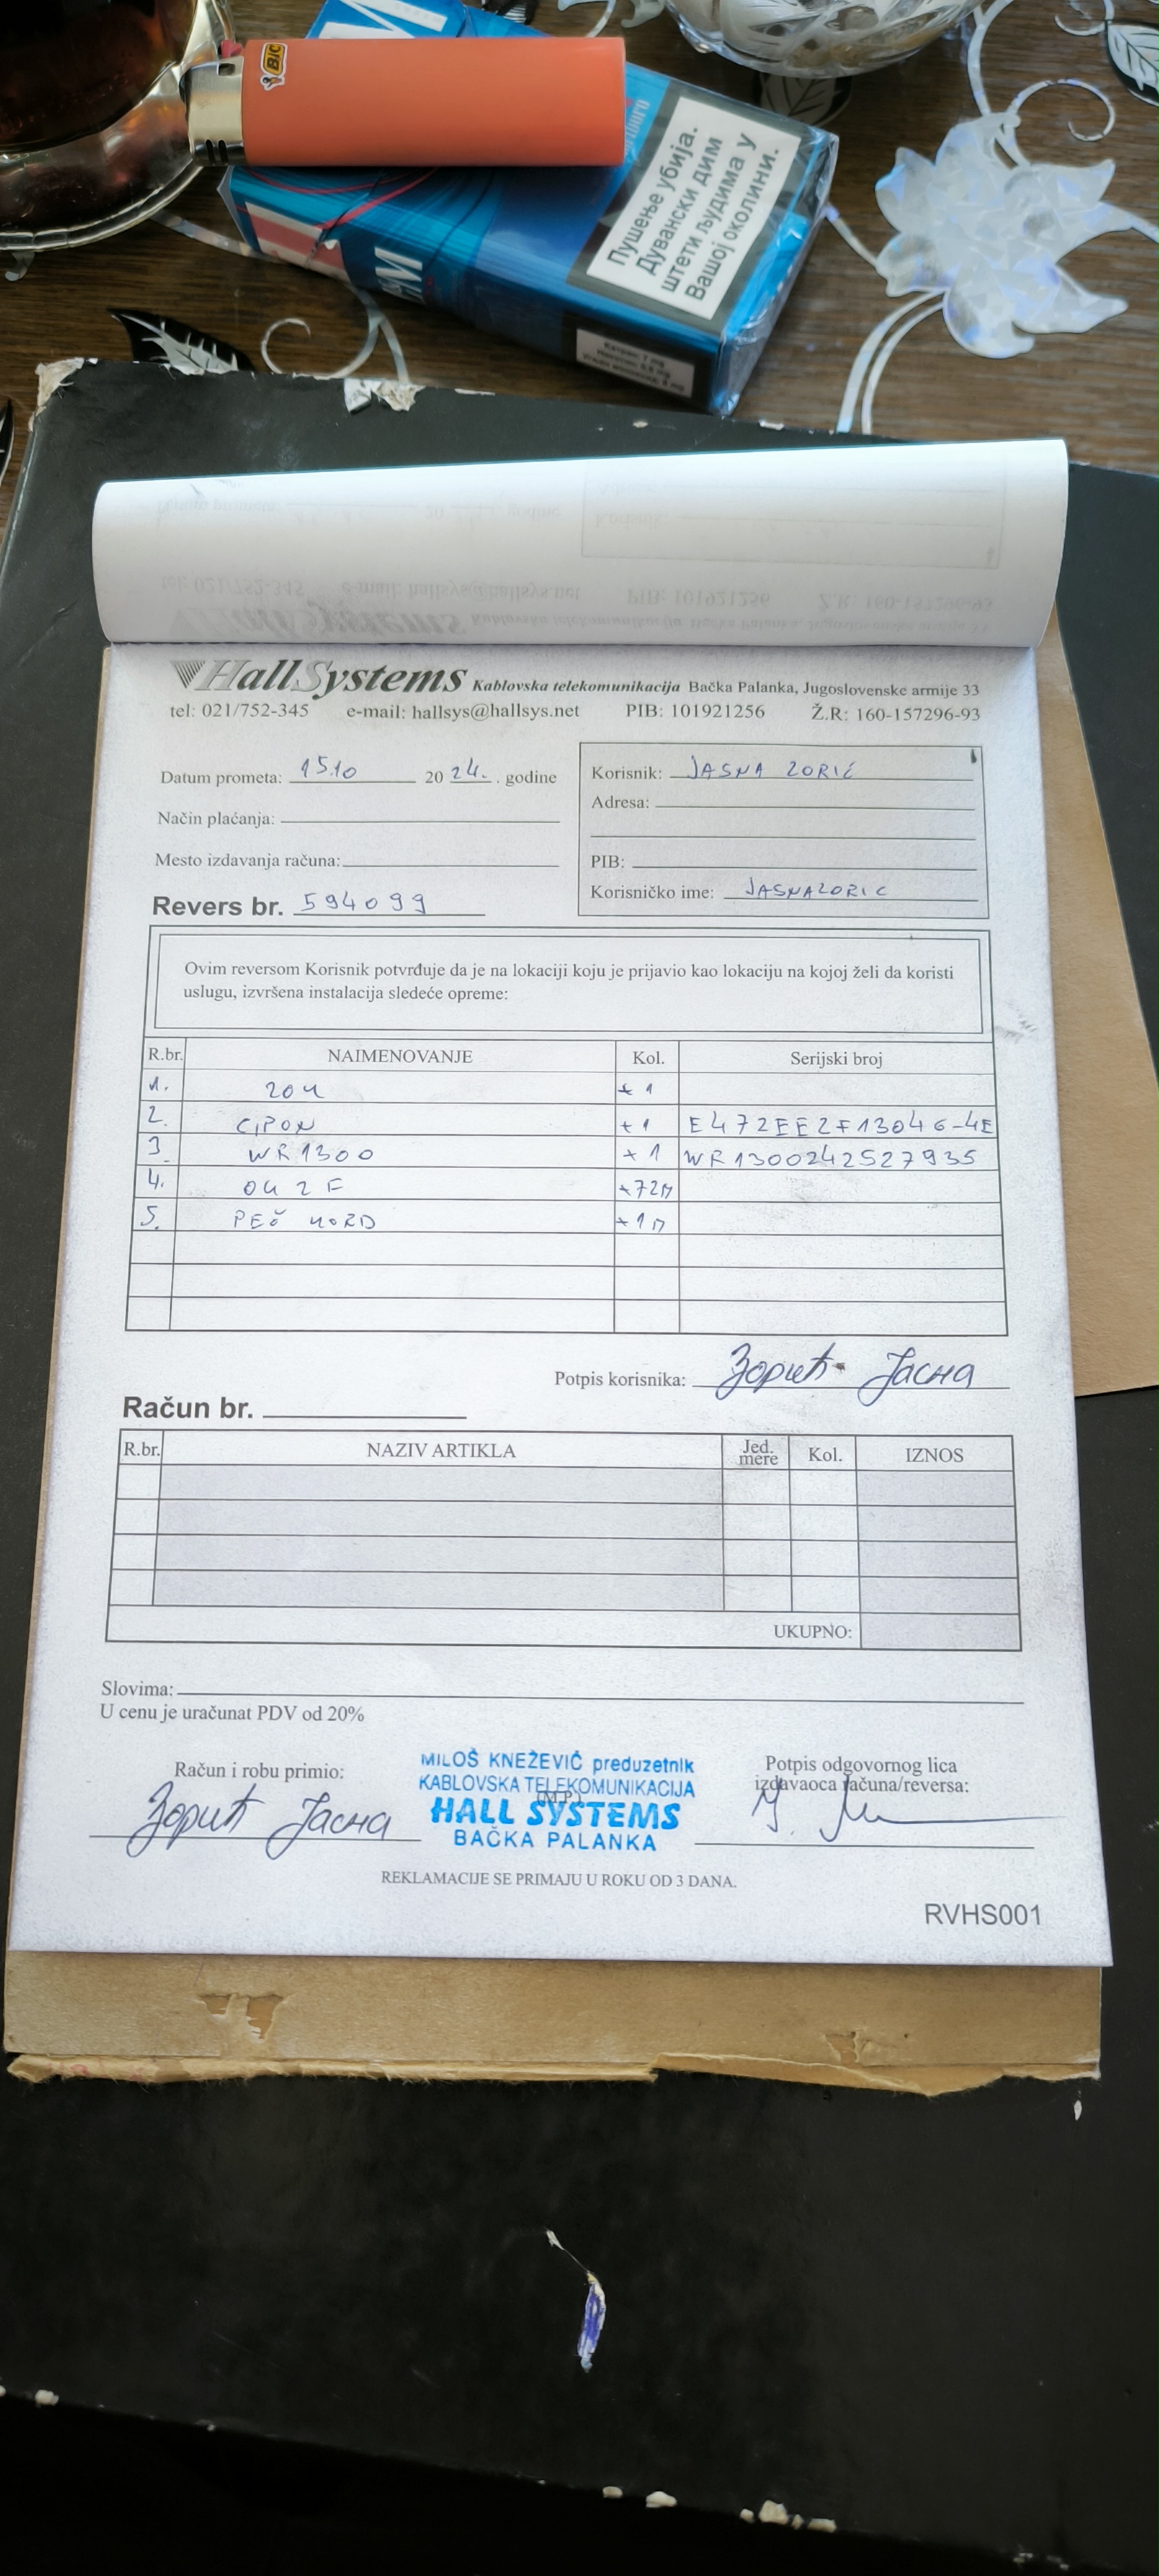 BIC
Пушење убија.
Дувански дим
штети људима у
Вашој околини.
HallSystems Kablovska telekomunikacija Bačka Palanka, Jugoslovenske armije 33
tel: 021/752-345 e-mail: hallsys@hallsys.net PIB: 101921256 Ž.R: 160-157296-93
Datum prometa: 15.10 20 24. . godine
Korisnik: JASNA ZORIĆ
Adresa:
Način plaćanja:
Mesto izdavanja računa:
PIB:
Korisničko ime: JASNAZORIC
Revers br. 594099
Ovim reversom Korisnik potvrđuje da je na lokaciji koju je prijavio kao lokaciju na kojoj želi da koristi
uslugu, izvršena instalacija sledeće opreme:
R.br. NAIMENOVANJE Kol. Serijski broj
1. ZOK +1
2. CIPON +1 E472EE2F13046-4E
3. WR1300 +1 WR1300242527935
4. OK 2F +72M
5. PEČ KORD +1M
Potpis korisnika: Зорић Јасна
Račun br.
R.br. NAZIV ARTIKLA Jed. mere Kol. IZNOS
UKUPNO:
Slovima:
U cenu je uračunat PDV od 20%
Račun i robu primio:
Зорић Јасна
MILOŠ KNEŽEVIĆ preduzetnik
KABLOVSKA TELEKOMUNIKACIJA
(M.P.)
HALL SYSTEMS
BAČKA PALANKA
Potpis odgovornog lica
izdavaoca računa/reversa:
REKLAMACIJE SE PRIMAJU U ROKU OD 3 DANA.
RVHS001